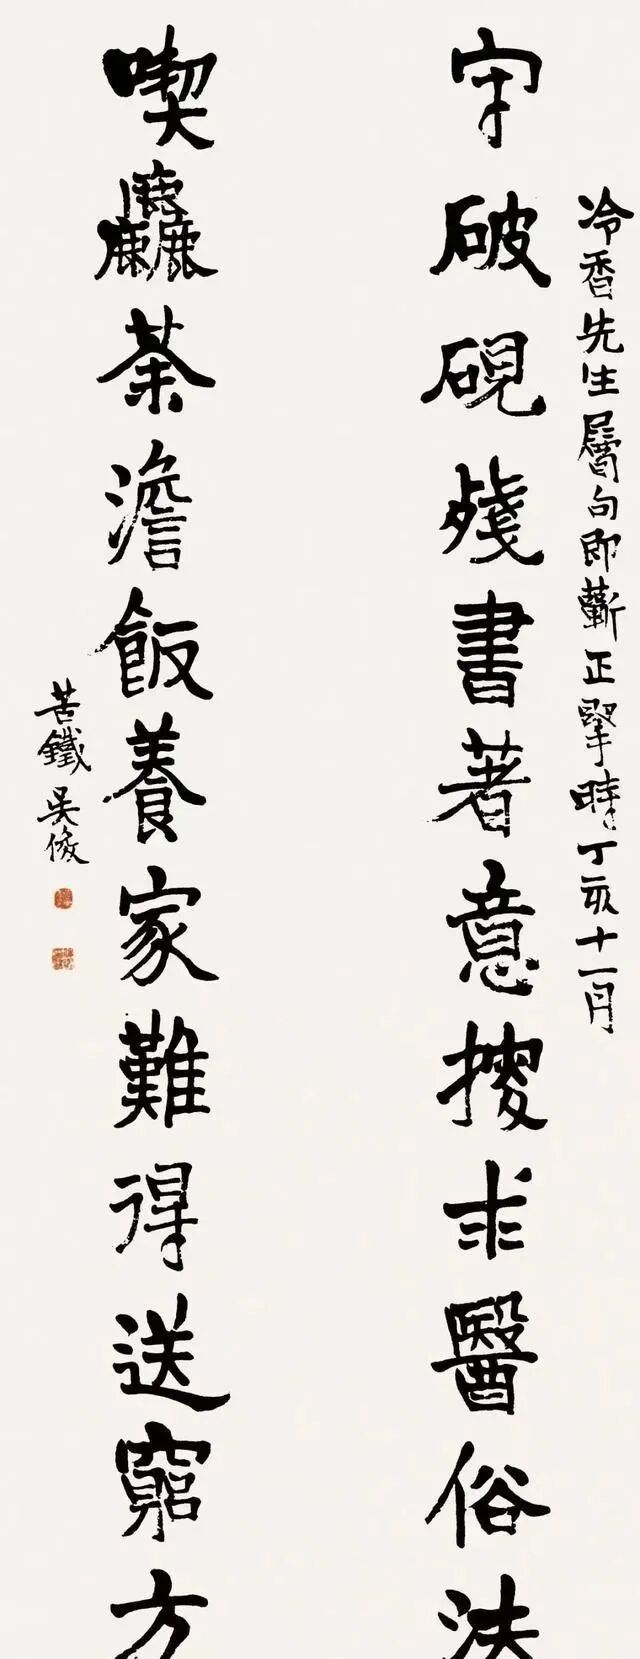 冷香先生屬句即蘄正掔時丁亥十一月
守破硯殘書著意搜求醫俗法
喫麤茶澹飯養家難得送窮方
苦鐵吳俊